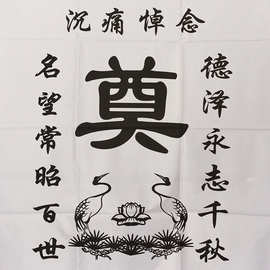 沉痛悼念
德泽永志千秋
奠
名望常昭百世